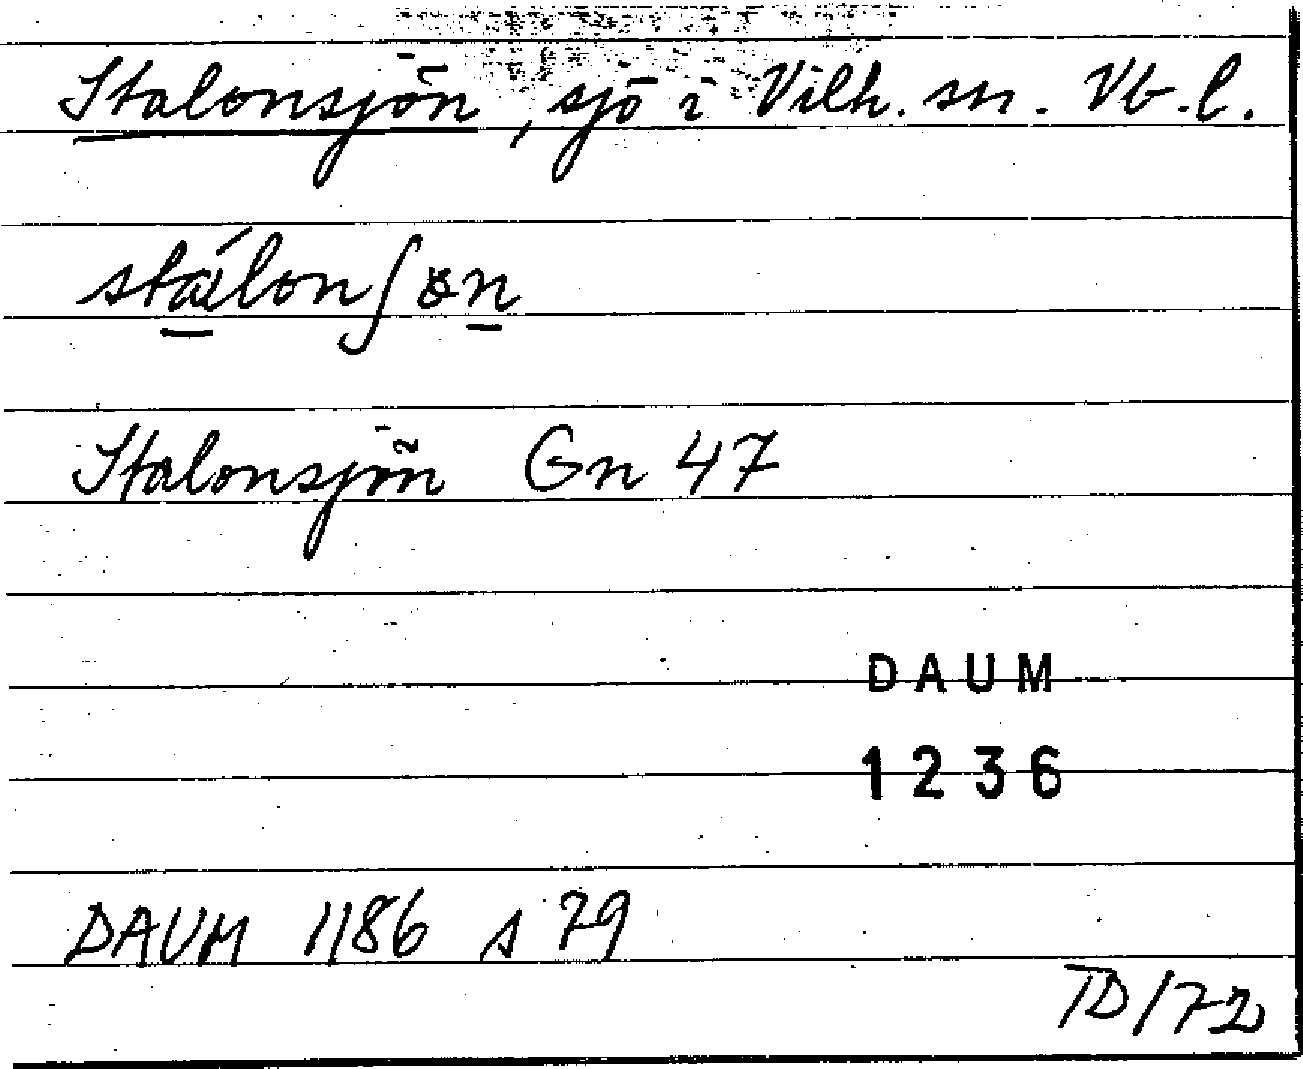 Stalonsjön, sjö i Vilh. sn. Vb. l.
stálonʃɵn
Stalonsjön Gn 47
DAUM
1236
DAUM 1186 s 79
TD/72